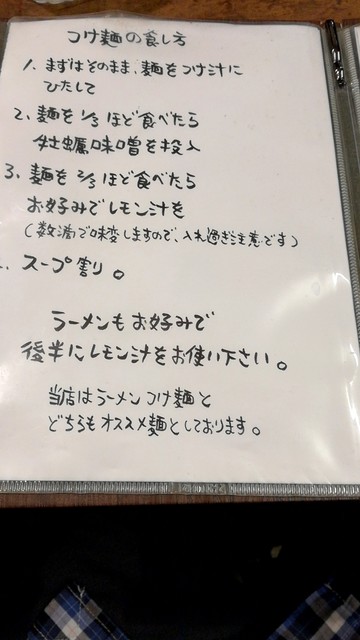 つけ麺の食し方
1. まずはそのまま、麺をつけ汁に
ひたして
2. 麺を1/3ほど食べたら
牡蠣味噌を投入
3. 麺を2/3ほど食べたら
お好みでレモン汁を
(数滴で味変しますので、入れ過ぎ注意です)
スープ割り。
ラーメンもお好みで
後半にレモン汁をお使い下さい。
当店はラーメンつけ麺と
どちらもオススメ麺としております。